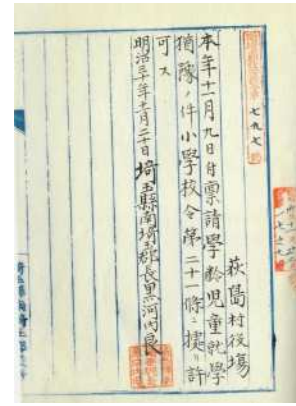 七九七
荻島村役場
本年十一月九日付禀請學齡児童就學
猶豫ノ件小學校令第二十一條ニ據リ許
可ス
明治三十年十一月二十日 埼玉縣南埼玉郡長黒河内良